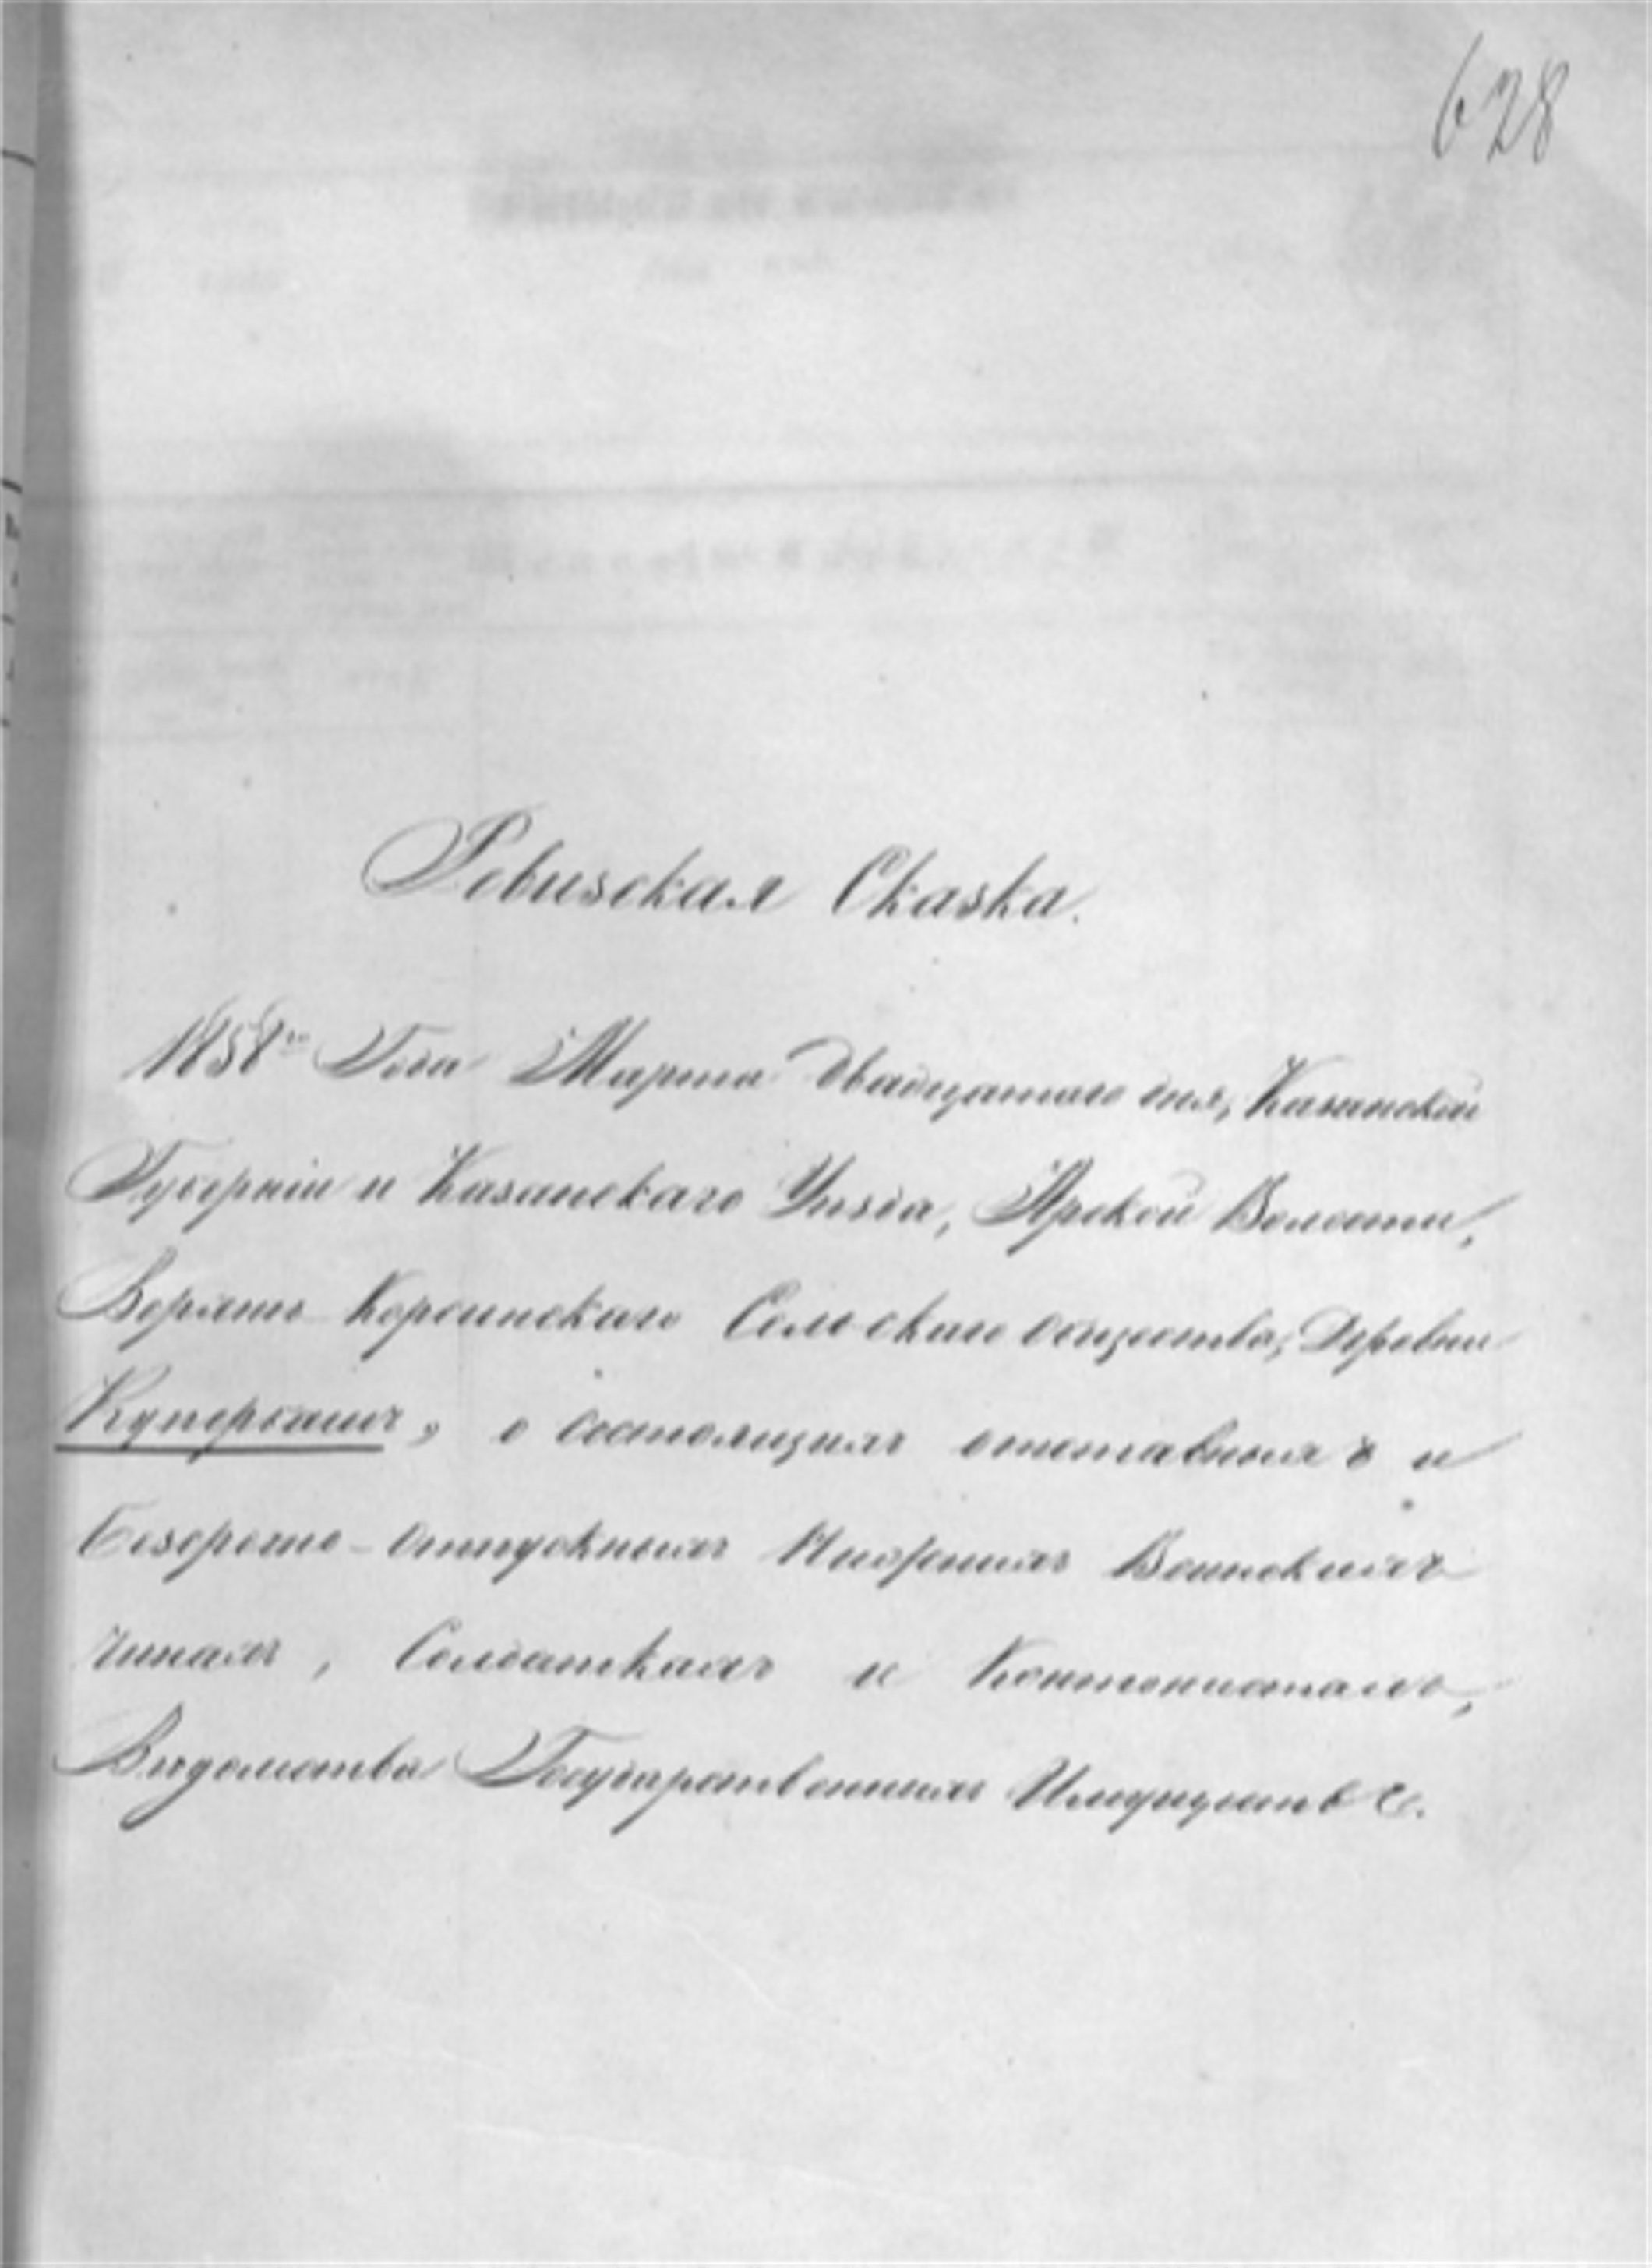 628
Ревизская Сказка.
1858го Года Марта двадцатаго дня, Казанской
Губерніи и Казанскаго Уѣзда, Арской Волости,
Верхъ-Корсинскаго Сельскаго общества, Деревни
Купербашъ, о состоящихъ отставныхъ и
Безсрочно-отпускныхъ Нижнихъ Воинскихъ
Чинахъ, Солдаткахъ и Контонистахъ,
Вѣдомства Государственныхъ Имуществъ.